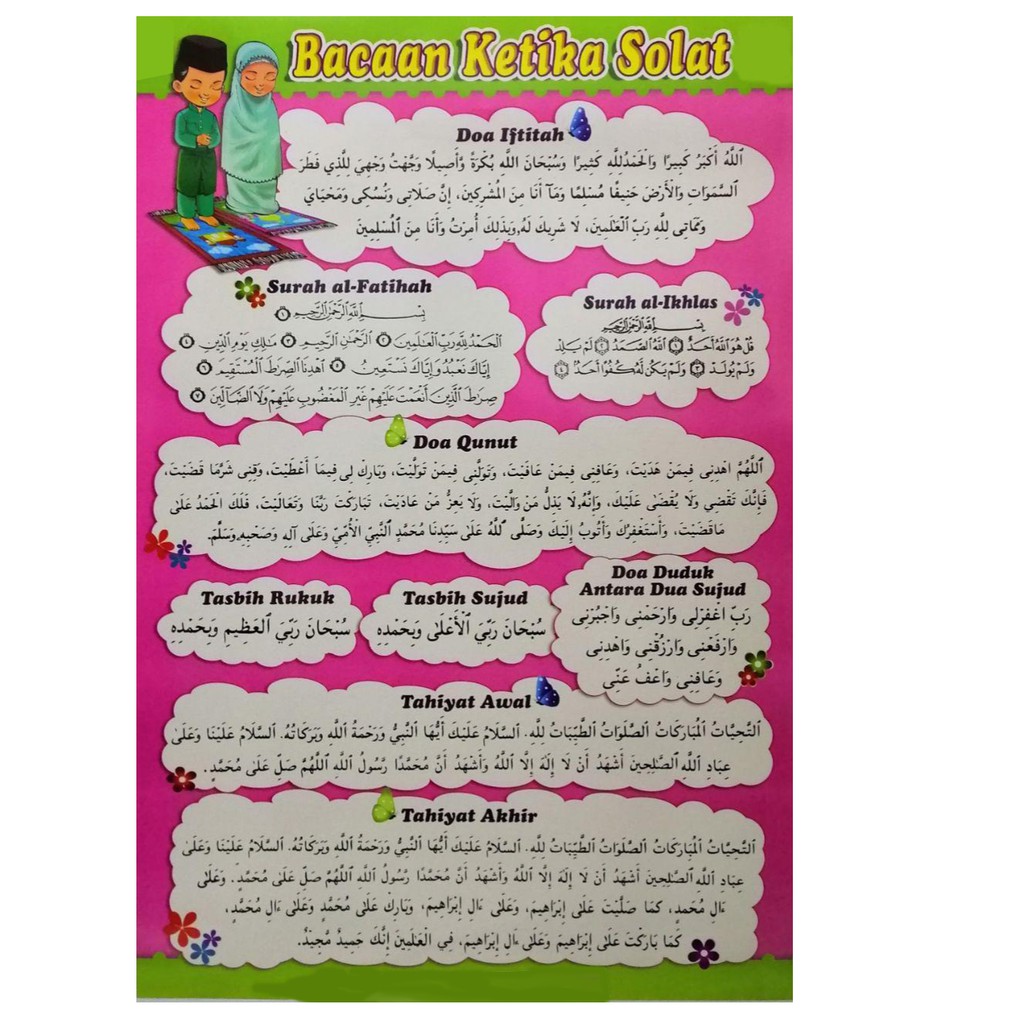 Bacaan Ketika Solat
Doa Iftitah
اَللَّهُ أَكْبَرُ كَبِيرًا وَالْحَمْدُلِلَّهِ كَثِيرًا وَسُبْحَانَ اللَّهِ بُكْرَةً وَّأَصِيلًا وَجَّهْتُ وَجْهِيَ لِلَّذِي فَطَرَ
ٱلسَّمَوَاتِ وَالْأَرْضَ حَنِيفًا مُسْلِمًا وَمَآ أَنَا مِنَ الْمُشْرِكِينَ، إِنَّ صَلَاتِى وَنُسُكِى وَمَحْيَايَ
وَمَمَاتِى لِلَّهِ رَبِّ الْعَلَمِينَ، لَا شَرِيكَ لَهُ، وَبِذَلِكَ أُمِرْتُ وَأَنَا مِنَ الْمُسْلِمِينَ
Surah al-Fatihah
بِسْمِ اللَّهِ الرَّحْمَٰنِ الرَّحِيمِ ١
الْحَمْدُ لِلَّهِ رَبِّ الْعَٰلَمِينَ ٢ الرَّحْمَٰنِ الرَّحِيمِ ٣ مَٰلِكِ يَوْمِ الدِّينِ ٤
إِيَّاكَ نَعْبُدُ وَإِيَّاكَ نَسْتَعِينُ ٥ اهْدِنَا الصِّرَٰطَ الْمُسْتَقِيمَ ٦
صِرَٰطَ الَّذِينَ أَنْعَمْتَ عَلَيْهِمْ غَيْرِ الْمَغْضُوبِ عَلَيْهِمْ وَلَا الضَّآلِّينَ ٧
Surah al-Ikhlas
بِسْمِ اللَّهِ الرَّحْمَٰنِ الرَّحِيمِ
قُلْ هُوَ اللَّهُ أَحَدٌ ١ اللَّهُ الصَّمَدُ ٢ لَمْ يَلِدْ
وَلَمْ يُولَدْ ٣ وَلَمْ يَكُن لَّهُ كُفُوًا أَحَدٌ ٤
Doa Qunut
اَللَّهُمَّ اهْدِنِى فِيمَنْ هَدَيْتَ، وَعَافِنِى فِيمَنْ عَافَيْتَ، وَتَوَلَّنِى فِيمَنْ تَوَلَّيْتَ، وَبَارِكْ لِى فِيمَا أَعْطَيْتَ، وَقِنِى شَرَّمَا قَضَيْتَ،
فَإِنَّكَ تَقْضِي وَلَا يُقْضَى عَلَيْكَ، وَإِنَّهُ، لَا يَذِلُّ مَنْ وَالَيْتَ، وَلَا يَعِزُّ مَنْ عَادَيْتَ، تَبَارَكْتَ رَبَّنَا وَتَعَالَيْتَ، فَلَكَ الْحَمْدُ عَلَى
مَاقَضَيْتَ، وَأَسْتَغْفِرُكَ وَأَتُوبُ إِلَيْكَ وَصَلَّى ٱللَّهُ عَلَى سَيِّدِنَا مُحَمَّدٍ النَّبِيِّ الْأُمِّيِّ وَعَلَى آلِهِ وَصَحْبِهِ وَسَلَّمَ.
Tasbih Rukuk
سُبْحَانَ رَبِّيَ الْعَظِيمِ وَبِحَمْدِهِ
Tasbih Sujud
سُبْحَانَ رَبِّيَ الْأَعْلَى وَبِحَمْدِهِ
Doa Duduk
Antara Dua Sujud
رَبِّ اغْفِرْلِى وَارْحَمْنِى وَاجْبُرْنِى
وَارْفَعْنِى وَارْزُقْنِى وَاهْدِنِى
وَعَافِنِى وَاعْفُ عَنِّى
Tahiyat Awal
اَلتَّحِيَّاتُ الْمُبَارَكَاتُ الصَّلَوَاتُ الطَّيِّبَاتُ لِلَّهِ. اَلسَّلَامُ عَلَيْكَ أَيُّهَا النَّبِيُّ وَرَحْمَةُ اللَّهِ وَبَرَكَاتُهُ. اَلسَّلَامُ عَلَيْنَا وَعَلَى
عِبَادِ اللَّهِ الصَّلِحِينَ أَشْهَدُ أَنْ لَا إِلَهَ إِلَّا اللَّهُ وَأَشْهَدُ أَنَّ مُحَمَّدًا رَسُولُ اللَّهِ اَللَّهُمَّ صَلِّ عَلَى مُحَمَّدٍ.
Tahiyat Akhir
اَلتَّحِيَّاتُ الْمُبَارَكَاتُ الصَّلَوَاتُ الطَّيِّبَاتُ لِلَّهِ. اَلسَّلَامُ عَلَيْكَ أَيُّهَا النَّبِيُّ وَرَحْمَةُ اللَّهِ وَبَرَكَاتُهُ. اَلسَّلَامُ عَلَيْنَا وَعَلَى
عِبَادِ اللَّهِ الصَّلِحِينَ أَشْهَدُ أَنْ لَا إِلَهَ إِلَّا اللَّهُ وَأَشْهَدُ أَنَّ مُحَمَّدًا رَسُولُ اللَّهِ اَللَّهُمَّ صَلِّ عَلَى مُحَمَّدٍ. وَعَلَى
ءَالِ مُحَمَّدٍ، كَمَا صَلَّيْتَ عَلَى إِبْرَاهِيمَ، وَعَلَى ءَالِ إِبْرَاهِيمَ، وَبَارِكْ عَلَى مُحَمَّدٍ وَعَلَى ءَالِ مُحَمَّدٍ،
كَمَا بَارَكْتَ عَلَى إِبْرَاهِيمَ وَعَلَى ءَالِ إِبْرَاهِيمَ، فِي الْعَلَمِينَ إِنَّكَ حَمِيدٌ مَّجِيدٌ.